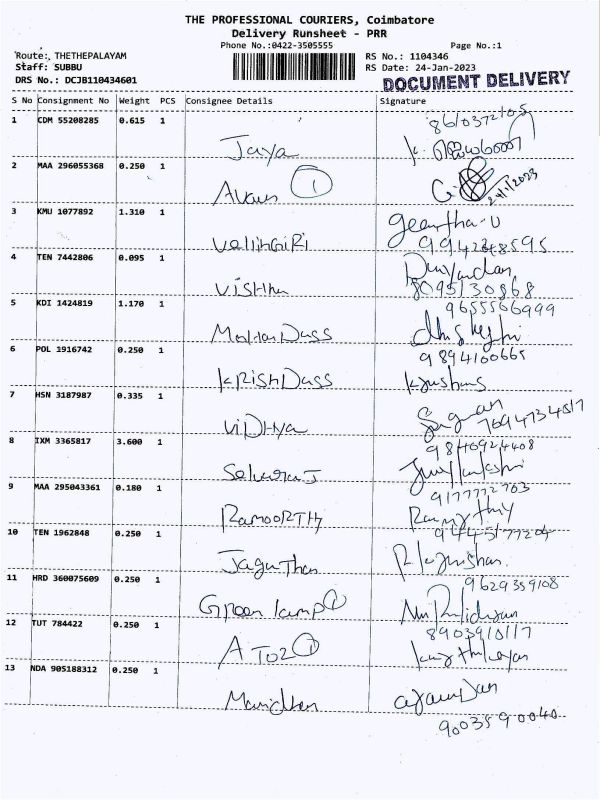 THE PROFESSIONAL COURIERS, Coimbatore
Delivery Runsheet - PRR
Phone No.:0422-3505555
Page No.:1
Route: THETHEPALAYAM
RS No.: 1104346
Staff: SUBBU
RS Date: 24-Jan-2023
DRS No.: DCJB110434601
DOCUMENT DELIVERY
S No Consignment No Weight PCS Consignee Details Signature
8610372105
1 CDM 55208285 0.615 1
Jaya
2 MAA 296055368 0.250 1
1 24/1/2023
3 KMU 1077892 1.310 1
geertha-U
VelliNGiRi 9942348595
4 TEN 7442806 0.095 1
Vishnu 8095130868
9655566999
5 KDI 1424819 1.170 1
MohanDass
9894100665
6 POL 1916742 0.250 1
KRishDass
7 HSN 3187987 0.335 1
7694734517
ViDHya
9840924408
8 IXM 3365817 3.600 1
Selvaraj
9177772703
9 MAA 295043361 0.180 1
RamooRTHy
10 TEN 1962848 0.250 1
Jaguthan
9629359108
11 HRD 360075609 0.250 1
Green lamp 1
8903910117
12 TUT 784422 0.250 1
A To2 1
13 NDA 905188312 0.250 1
9003590040